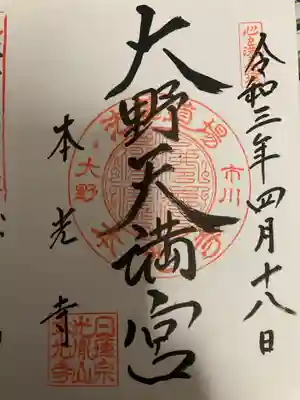 令和三年四月十八日
大野天満宮
本光寺
道場
市川
大野
日蓮宗
光胤山
本光寺